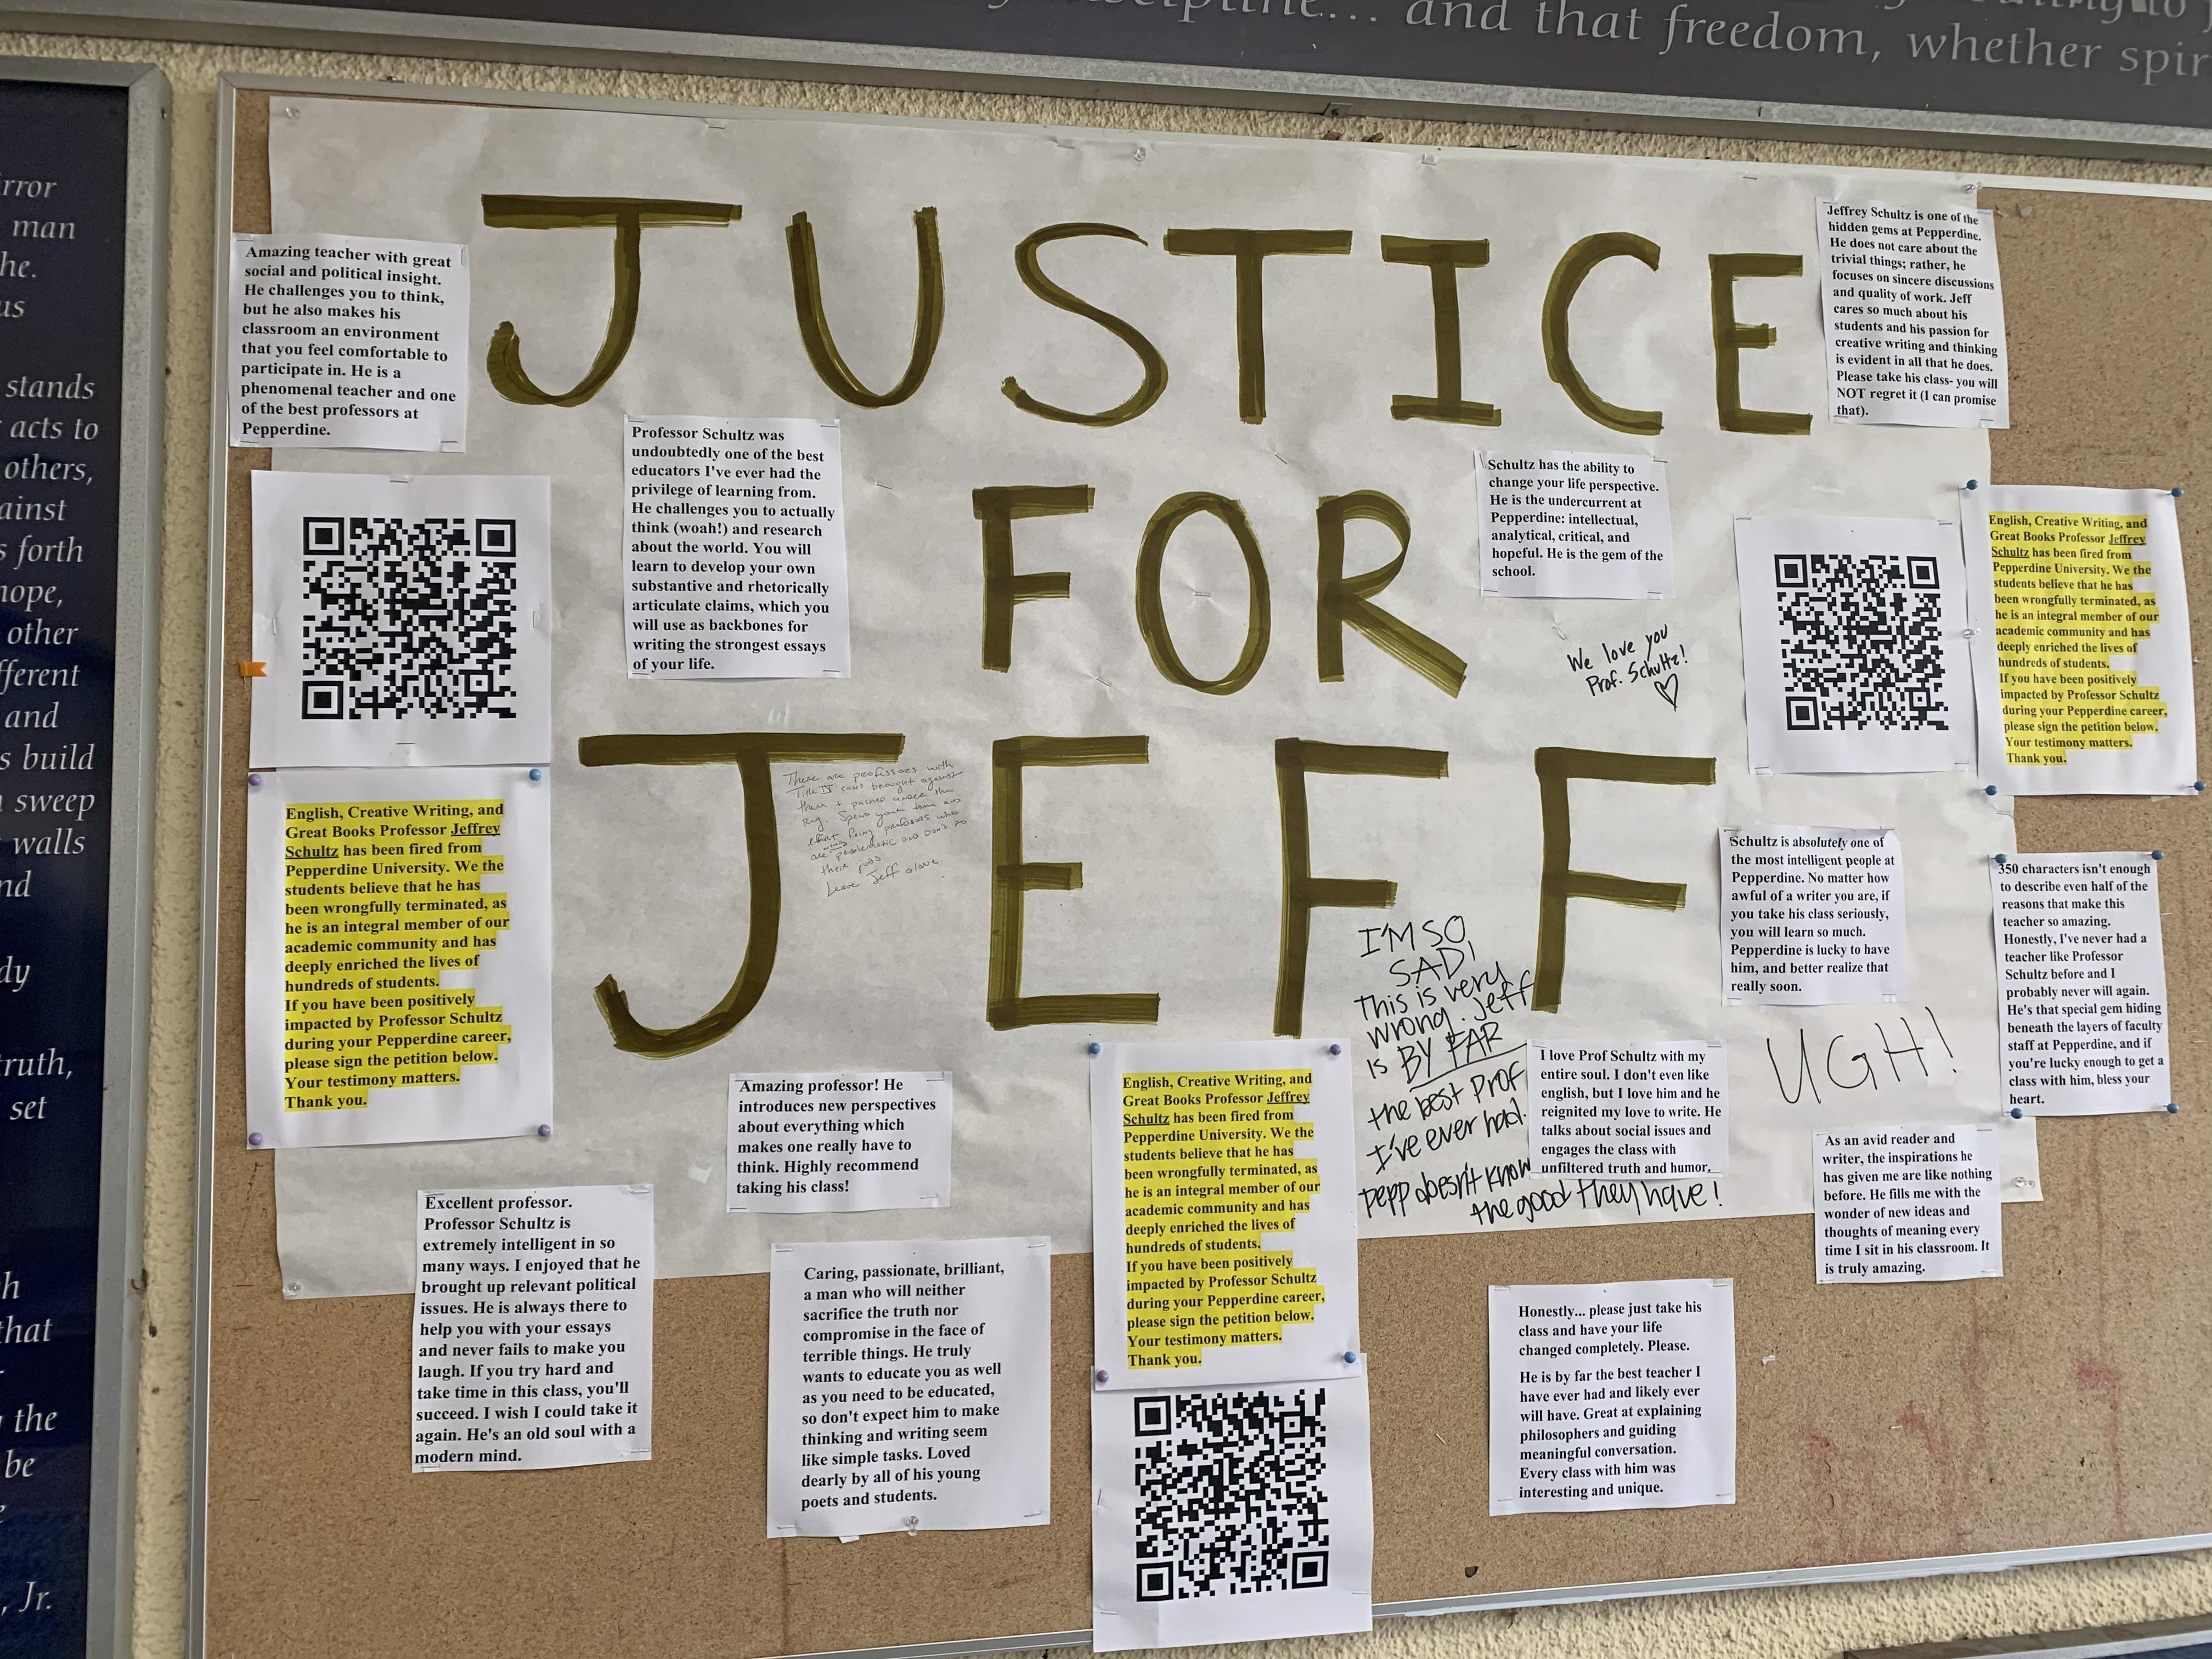 and that freedom, whether
man
he.
stands
acts to
others,
forth
other
and
build
sweep
walls
set
that
the
be
, Jr.
JUSTICE
FOR
JEFF
Amazing teacher with great
social and political insight.
He challenges you to think,
but he also makes his
classroom an environment
that you feel comfortable to
participate in. He is a
phenomenal teacher and one
of the best professors at
Pepperdine.
Professor Schultz was
undoubtedly one of the best
educators I've ever had the
privilege of learning from.
He challenges you to actually
think (woah!) and research
about the world. You will
learn to develop your own
substantive and rhetorically
articulate claims, which you
will use as backbones for
writing the strongest essays
of your life.
Schultz has the ability to
change your life perspective.
He is the undercurrent at
Pepperdine: intellectual,
analytical, critical, and
hopeful. He is the gem of the
school.
Jeffrey Schultz is one of the
hidden gems at Pepperdine.
He does not care about the
trivial things; rather, he
focuses on sincere discussions
and quality of work. Jeff
cares so much about his
students and his passion for
creative writing and thinking
is evident in all that he does.
Please take his class- you will
NOT regret it (I can promise
that).
We love you
Prof. Schultz!
English, Creative Writing, and
Great Books Professor Jeffrey
Schultz has been fired from
Pepperdine University. We the
students believe that he has
been wrongfully terminated, as
he is an integral member of our
academic community and has
deeply enriched the lives of
hundreds of students.
If you have been positively
impacted by Professor Schultz
during your Pepperdine career,
please sign the petition below.
Your testimony matters.
Thank you.
English, Creative Writing, and
Great Books Professor Jeffrey
Schultz has been fired from
Pepperdine University. We the
students believe that he has
been wrongfully terminated, as
he is an integral member of our
academic community and has
deeply enriched the lives of
hundreds of students.
If you have been positively
impacted by Professor Schultz
during your Pepperdine career,
please sign the petition below.
Your testimony matters.
Thank you.
There are professors with
Title IX cases brought against
them + pushed under the
rug. Spend your time and
effort firing professors who
are problematic and don't do
their jobs
Leave Jeff alone.
I'M SO
SAD!
This is very
wrong. Jeff
is BY FAR
the best Prof
I've ever had.
Pepp doesn't know
the good they have!
Schultz is absolutely one of
the most intelligent people at
Pepperdine. No matter how
awful of a writer you are, if
you take his class seriously,
you will learn so much.
Pepperdine is lucky to have
him, and better realize that
really soon.
350 characters isn't enough
to describe even half of the
reasons that make this
teacher so amazing.
Honestly, I've never had a
teacher like Professor
Schultz before and I
probably never will again.
He's that special gem hiding
beneath the layers of faculty
staff at Pepperdine, and if
you're lucky enough to get a
class with him, bless your
heart.
UGH!
Amazing professor! He
introduces new perspectives
about everything which
makes one really have to
think. Highly recommend
taking his class!
English, Creative Writing, and
Great Books Professor Jeffrey
Schultz has been fired from
Pepperdine University. We the
students believe that he has
been wrongfully terminated, as
he is an integral member of our
academic community and has
deeply enriched the lives of
hundreds of students.
If you have been positively
impacted by Professor Schultz
during your Pepperdine career,
please sign the petition below.
Your testimony matters.
Thank you.
I love Prof Schultz with my
entire soul. I don't even like
english, but I love him and he
reignited my love to write. He
talks about social issues and
engages the class with
unfiltered truth and humor.
As an avid reader and
writer, the inspirations he
has given me are like nothing
before. He fills me with the
wonder of new ideas and
thoughts of meaning every
time I sit in his classroom. It
is truly amazing.
Excellent professor.
Professor Schultz is
extremely intelligent in so
many ways. I enjoyed that he
brought up relevant political
issues. He is always there to
help you with your essays
and never fails to make you
laugh. If you try hard and
take time in this class, you'll
succeed. I wish I could take it
again. He's an old soul with a
modern mind.
Caring, passionate, brilliant,
a man who will neither
sacrifice the truth nor
compromise in the face of
terrible things. He truly
wants to educate you as well
as you need to be educated,
so don't expect him to make
thinking and writing seem
like simple tasks. Loved
dearly by all of his young
poets and students.
Honestly... please just take his
class and have your life
changed completely. Please.
He is by far the best teacher I
have ever had and likely ever
will have. Great at explaining
philosophers and guiding
meaningful conversation.
Every class with him was
interesting and unique.